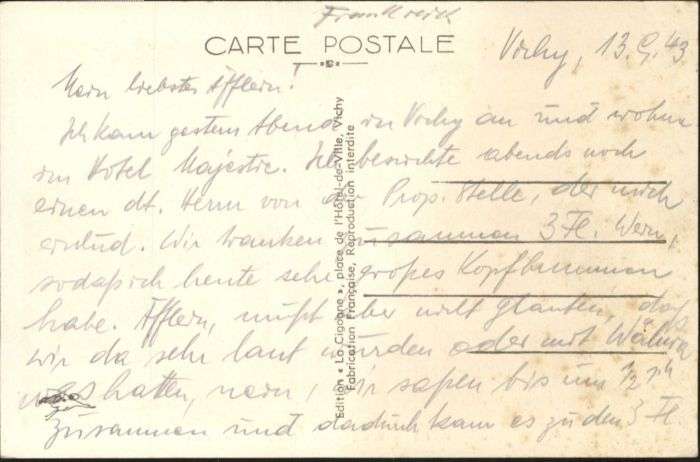 Frankreich
CARTE POSTALE
Vichy, 13.9.43
Mein liebstes Äfflein!
Ich kam gestern Abend in Vichy an und wohne
im Hotel Majestic. Ich besuchte abends noch
einen dt. Herrn von der Prop. Stelle, der mich
einlud. Wir tranken zusammen 3 Fl. Wein,
sodaß ich heute sehr großes Kopfbrummen
habe. Äfflein, mußt aber nicht glauben, daß
wir da sehr laut wurden oder mit Weibern
hatten, nein, wir saßen bis um 1/2
zusammen und dadurch kam es zu den 3 Fl.
Edition « La Cigogne », place de l'Hôtel-de-Ville, Vichy
Fabrication Française, Reproduction interdite